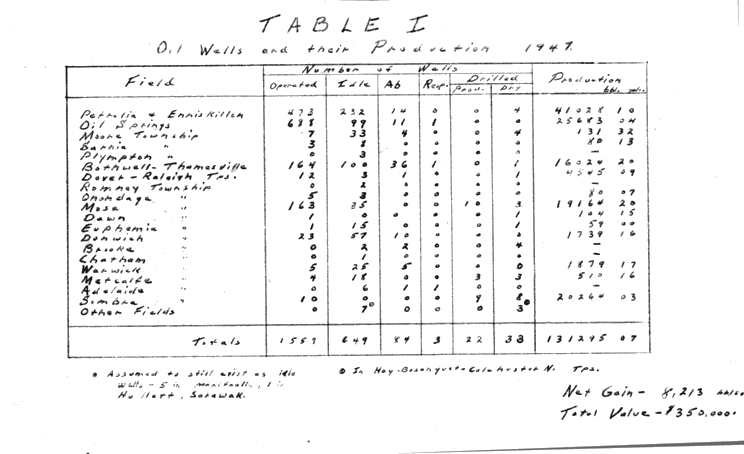 TABLE I
Oil Wells and their Production 1947.
Number of Wells
Field Operated Idle Ab Reop. Drilled Production
Prod. Dry bbl.
Petrolia & Enniskillen 473 232 14 0 0 4 41028 10
Oil Springs 688 99 11 1 0 0 25683 04
Moore Township 7 33 4 0 0 4 131 32
Sarnia " 3 8 0 0 0 0 80 13
Plympton " 0 3 0 0 0 0 —
Bothwell-Thamesville 164 100 36 1 0 1 16024 20
Dover-Raleigh Tps. 12 3 1 0 0 1 4545 09
Romney Township 0 2 0 0 0 0 —
Onondaga " 5 3 0 0 0 0 80 07
Mosa " 163 35 0 0 10 3 19164 20
Dawn " 1 0 0 0 0 1 104 15
Euphemia " 1 15 0 0 0 1 59 00
Dunwich " 23 57 10 0 0 0 1739 16
Brooke " 0 2 2 0 0 4 —
Chatham " 0 1 0 0 0 0 —
Warwick " 5 25 5 0 0 0 1879 17
Metcalfe " 4 18 0 0 3 3 510 16
Adelaide " 0 6 1 1 0 0 —
Sombra " 10 0 0 0 9 8 20264 03
Other Fields 0 7 0 0 0 3
Totals 1559 649 84 3 22 33 131295 07
Assumed to still exist as idle
wells - 5 in Manitoulin, 1 in
Hullett, Sarawak.
In Hay-Bosanquet-Colchester N. Tps.
Net Gain - 8,213 bbls
Total Value - $350,000.